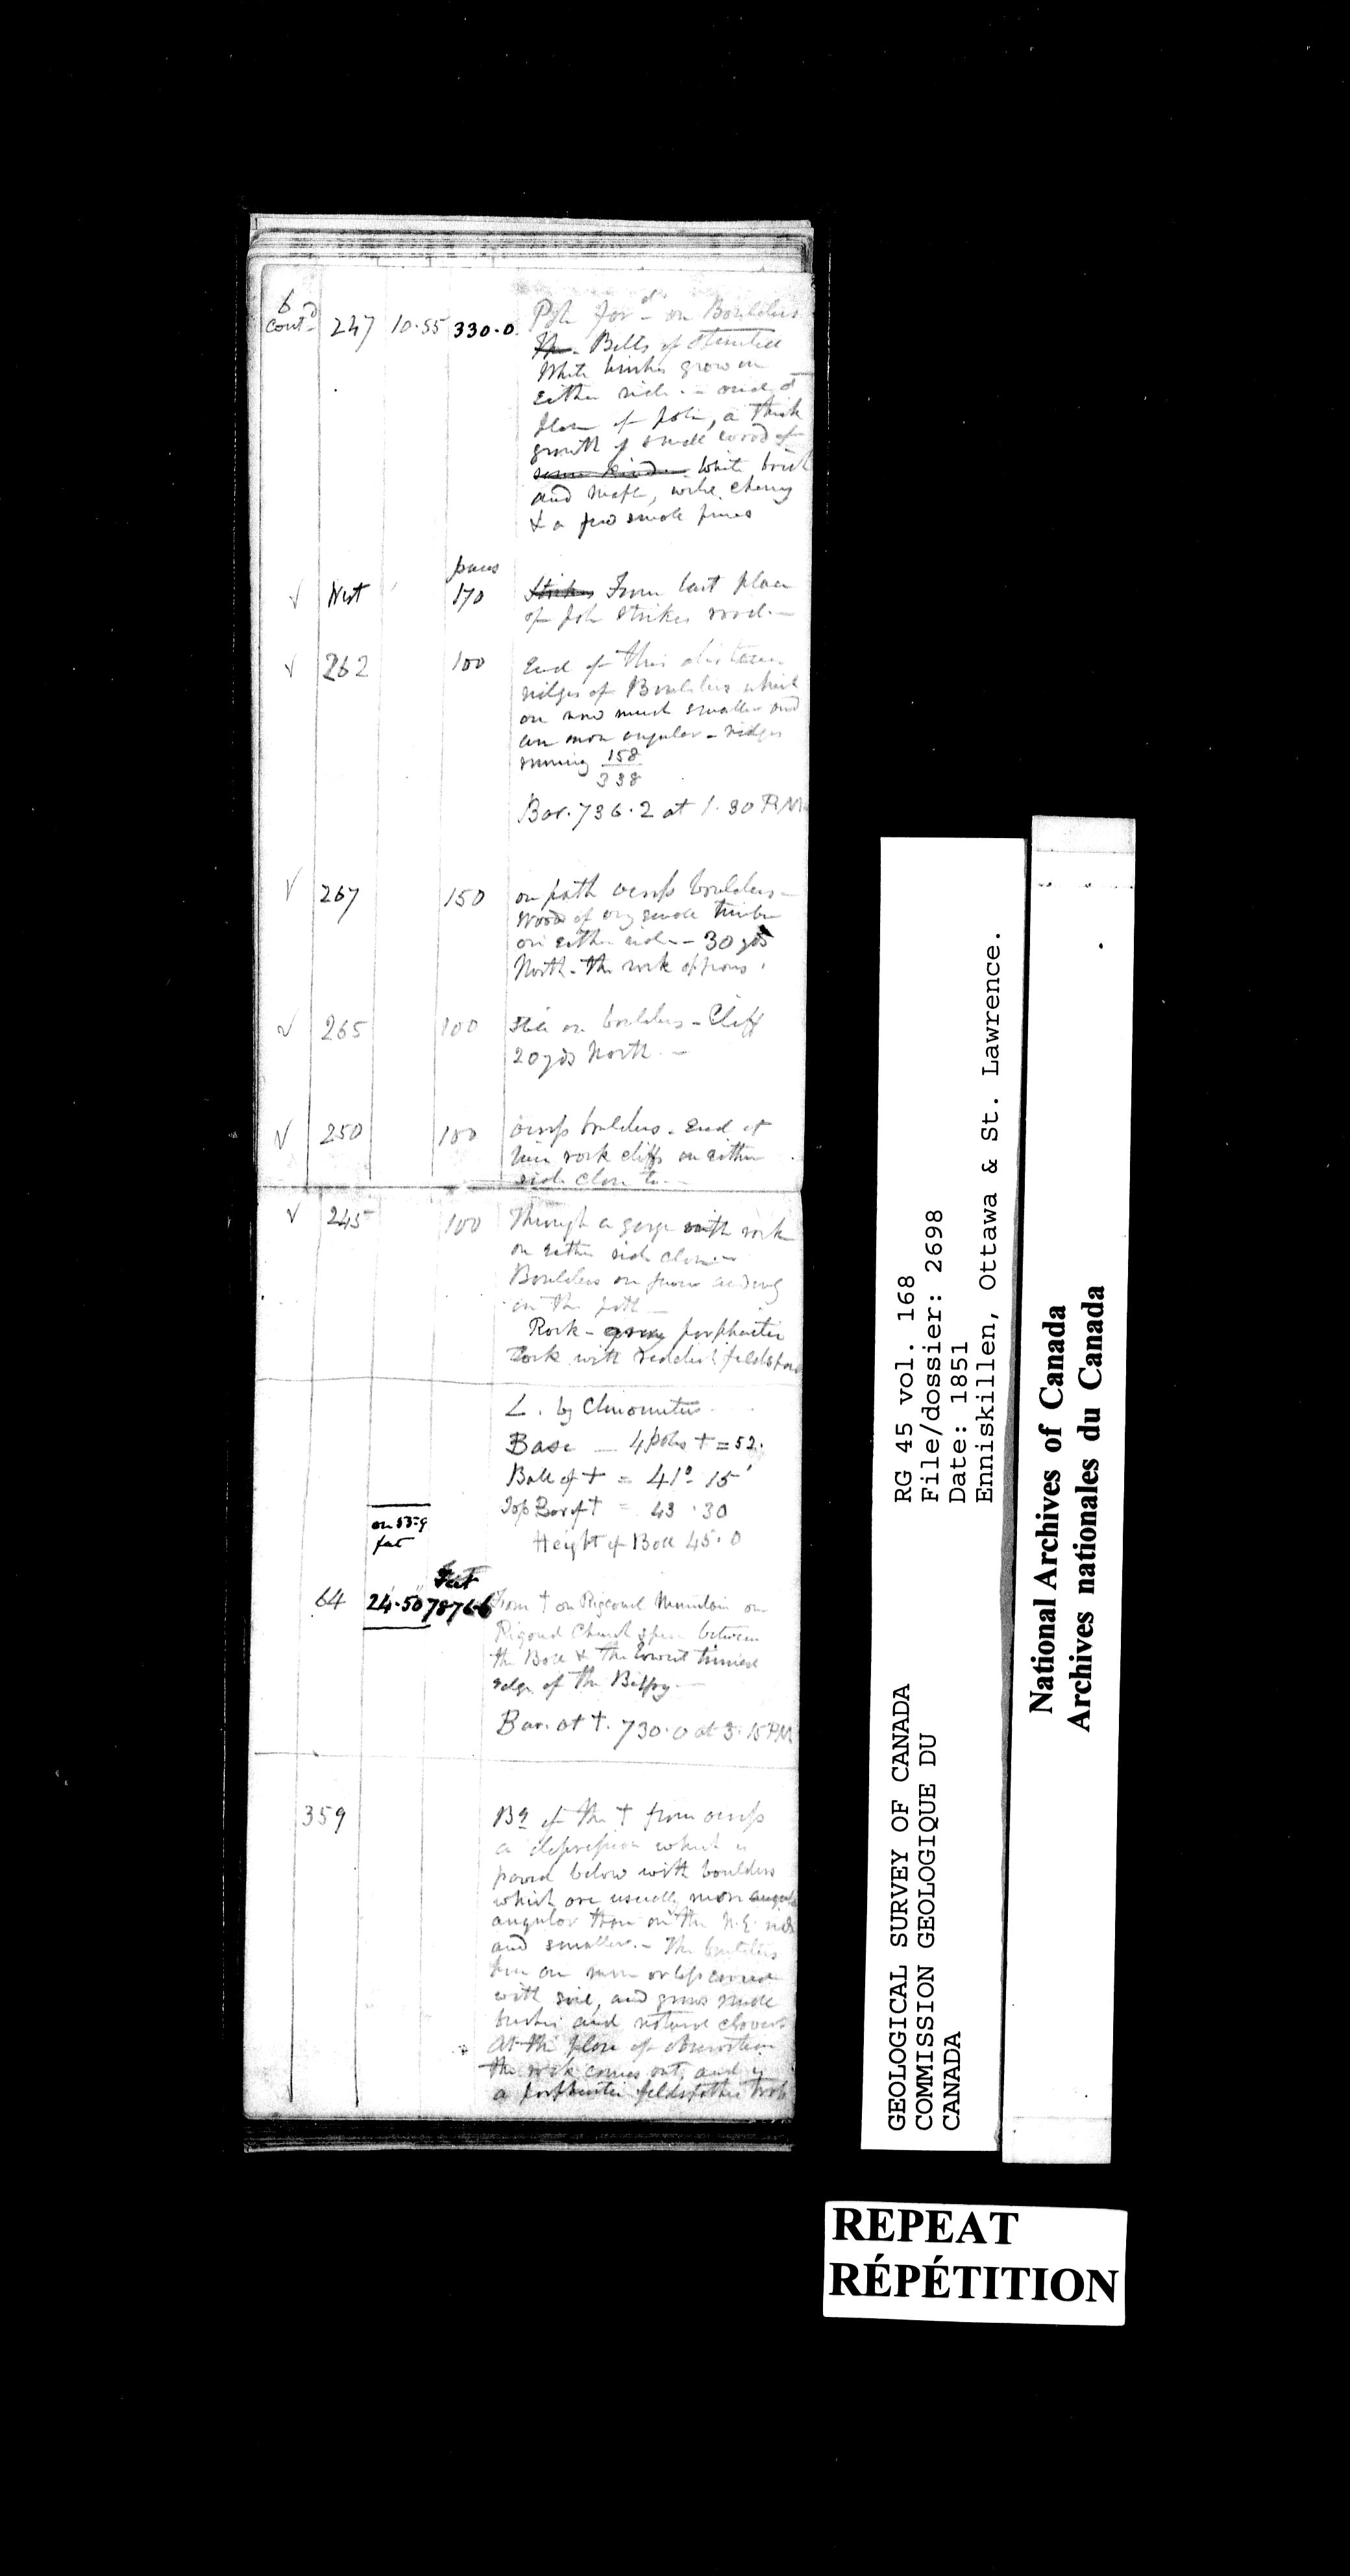 6
cont^d 247 10.55 330.0 Pole for^d on Boulders
Belts of stunted
White birches grow on
either side. - and at
place of pole, a thick
growth of small wood of
same kind White birch
and maple, wild cherry
& a few small pines
paces
√ West 170 Strikes From last place
of pole strikes road. -
√ 262 100 End of this distance
ridges of Boulders which
are now much smaller and
are more angular - ridges
running 158
338
Bar. 736.2 at 1.30 P.M.
√ 267 150 on path across boulders -
Wood of very small timber
on either side - 30 yds
North - the rock appears.
√ 265 100 still on boulders - Cliff
20 yds North. -
√ 250 100 across boulders. End at
rock cliffs on either
side close to. -
√ 245 100 Through a gorge with rock
on either side close. -
Boulders on
in the path -
Rock - gray porphoritic
rock with reddish feldspar
∠. by Clinometer
Base - 4 poles + = 52.
Ball of † = 41° 15'
Top Bar of † = 43.30
Height of Ball 45.0
on 53.9
feet
Feet
64 24.50 7876.6 from † on Rigaud Mountain on
Rigaud Church spire between
the Ball & the lowest
edge of the Belfry. -
Bar. at †. 730.0 at 3.15 PM
359 Bg of the † from across
a depression which is
paved below with boulders
which are usually more
angular than on the N.E. side
and smaller. - The boulders
here are more or less covered
with soil, and grows small
bushes and natural clover
At the place of observation
the rock comes out, and is
a porphoritic feldspathic trap
RG 45 vol. 168
File/dossier: 2698
Date: 1851
Enniskillen, Ottawa & St. Lawrence.
GEOLOGICAL SURVEY OF CANADA
COMMISSION GEOLOGIQUE DU
CANADA
National Archives of Canada
Archives nationales du Canada
REPEAT
RÉPÉTITION